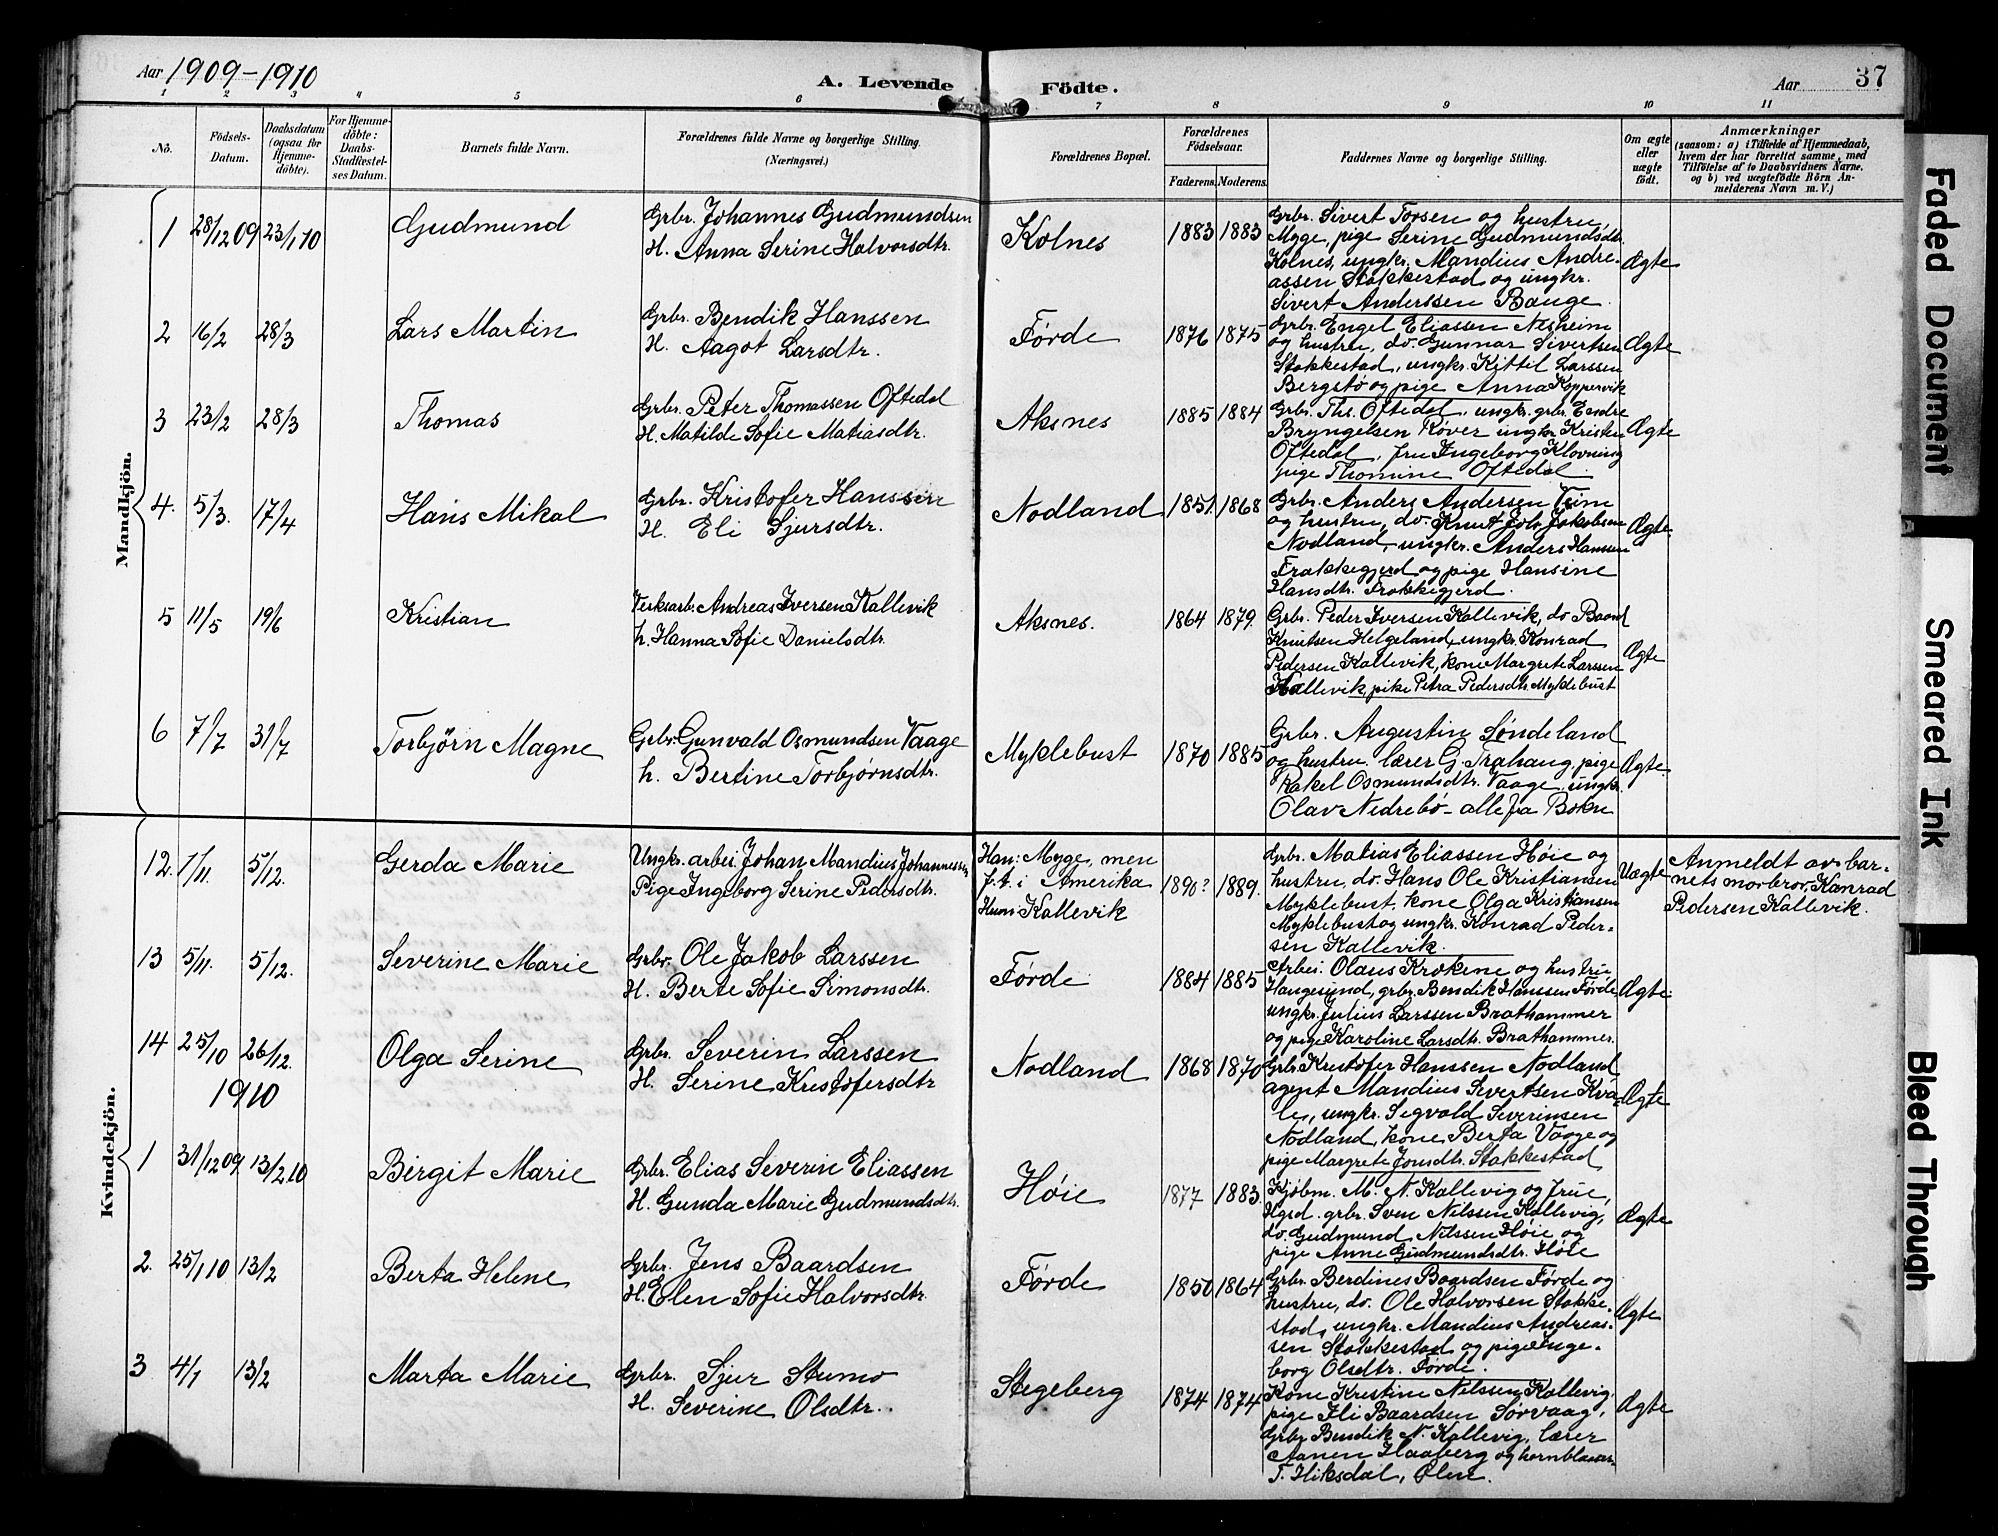 Aar 1909-1910
A. Levende Födte.
Aar 37
1 2 3 4 5 6 7 8 9 10 11
Nô.
Födsels-Datum.
Daabsdatum (ogsaa for Hjemme-döbte).
For Hjemme-döbte: Daabs-Stadfæstel-ses Datum.
Barnets fulde Navn.
Forældrenes fulde Navne og borgerlige Stilling. (Næringsvei.)
Forældrenes Bopæl.
Forældrenes Födselsaar.
Faderens. Moderens.
Faddernes Navne og borgerlige Stilling.
Om ægte eller uægte födt.
Anmærkninger
(saasom: a) i Tilfælde af Hjemmedaab, hvem der har forrettet samme, med Tilföielse af to Daabsvidners Navne, og b) ved uægtefödte Börn An-melderens Navn m. V.)
Mandkjön.
1 28/12 09 23/1 10 Gudmund
Grbr. Johannes Gudmundsen
H. Anna Serine Halvorsdtr.
Kolnes 1883 1883
Grbr. Sivert Torsen og hustru,
Myge, pige Serine Gudmundsdtr.
Kolnes, ungkr. Mandius Andre-
assen Stakkestad og ungkr.
Sivert Anderssen Bauge.
Ægte
2 16/2 28/3 Lars Martin
Grbr. Bendik Hanssen
H. Aagot Larsdtr.
Førde 1876 1875
Grbr. Engel Eliassen Nesheim
og hustru, do. Gunnar Sivertsen
Stakkestad, ungkr. Kittil Larssen
Bergstø og pige Anna Koppervik
Ægte
3 23/2 28/3 Thomas
Grbr. Peter Thomassen Oftedal
H. Matilde Sofie Matiasdtr.
Aksnes 1885 1884
Grbr. Ths. Oftedal, ungkr. grbr. Endre
Bryngelsen Røver ungkr. Kristen
Oftedal, fru Ingeborg Klovning
pige Thomine Oftedal.
Ægte
4. 5/3. 17/4 Hans Mikal
Grbr. Kristofer Hanssen
H. Eli Sjursdtr.
Nodland 1851. 1868
Grbr. Anders Andersen Veim
og hustru, do. Knut Joh. Jakobsen
Nodland, ungkr. Anders Hanssen
Frakkegjerd og pige Hansine
Hansdtr. Frakkegjerd.
Ægte.
5 11/5 19/6 Kristian
Verksarb. Andreas Iversen Kallevik
h. Hanna Sofie Danielsdtr.
Aksnes. 1864 1879.
Grbr. Peder Iversen Kallevik, do Baard
Knutsen Helgeland, ungkr. Konrad
Pedersen Kallevik, kone Margrete Larssen
Kallevik, pike Petra Pedersdtr. Myklebust
Ægte
6 7/7 31/7 Torbjörn Magne
Grbr. Gunvald Osmundsen Vaage
h. Bertine Torbjørnsdtr.
Myklebust 1870 1885
Grbr. Augustin Søndeland
og hustru. lærer G. Trahaug, pige
Rakel Osmundsdtr. Vaage, ungkr.
Olav Nedrebö - alle fra Bokn
Ægte.
Kvindekjön.
12. 1/11. 5/12. Gerda Marie
Ungkr. arbei. Johan Mandius Johannessen
Pige Ingeborg Serine Pedersdtr.
Han: Myge, men
f.t. i Amerika
Hun: Kallevik
1890? 1889.
Grbr. Matias Eliassen Høie og
hustru, do. Hans Ole Kristiansen
Myklebust, kone Olga Kristiansen
Myklebust og ungkr. Konrad Peder-
sen Kallevik.
Uægte
Anmeldt av bar-
nets morbror, Konrad
Pedersen Kallevik.
13 5/11. 5/12. Severine Marie
Grbr. Ole Jakob Larssen
H. Berte Sofie Simonsdtr.
Førde 1884 1885
Arbei. Olaus Krokene og hustrue
Haugesund, grbr. Bendik Hanssen Førde,
ungkr. Julius Larssen Brathammer
og pige Karoline Larsdtr. Brathammer.
Ægte.
14 25/10 26/12. Olga Serine
Grbr. Severin Larssen
H. Serine Kristofersdtr
Nodland 1868 1870
Grbr. Kristofer Hanssen Nodland
agent Mandius Sivertsen Kva-
le, ungkr. Segvald Severinsen
Nodland, kone Berta Vaage og
pige Margrete Jonsdtr. Stakkestad
Ægte
1910
1 31/12 09. 13/2 10 Birgit Marie
Grbr. Elias Severin Eliassen
H. Gunda Marie Gudmundsdtr.
Høie 1877 1883.
Kjøbm. M. N. Kallevig og frue,
Hgsd. grbr. Sven Nilssen Kallevig,
do. Gudmund Nilssen Høie og
pige Anne Gudmundsdtr. Høie
Ægte
2. 25/1 10 13/2 Berta Helene
Grbr. Jens Baardsen
H. Elen Sofie Halvorsdtr.
Førde 1850 1864
Grbr. Berdines Baardsen Førde og
hustru, do. Ole Halvorsen Stakke-
stad, ungkr. Mandius Andreas-
sen Stakkestad og pige Inge-
borg Olsdtr. Førde.
Ægte
3 4/1 13/2 Marta Marie
Grbr. Sjur Stumo
H. Severine Olsdtr.
Stegeberg 1874 1874
Kone Kristine Nilssen Kallevig,
pige Eli Baardsen Sørvaag,
Grbr. Bendik N. Kallevig, lærer
Aanen Haaberg og hornblaaser
T. Hiksdal, Ølen.
Ægte
Faded Document
Smeared Ink
Bleed Through